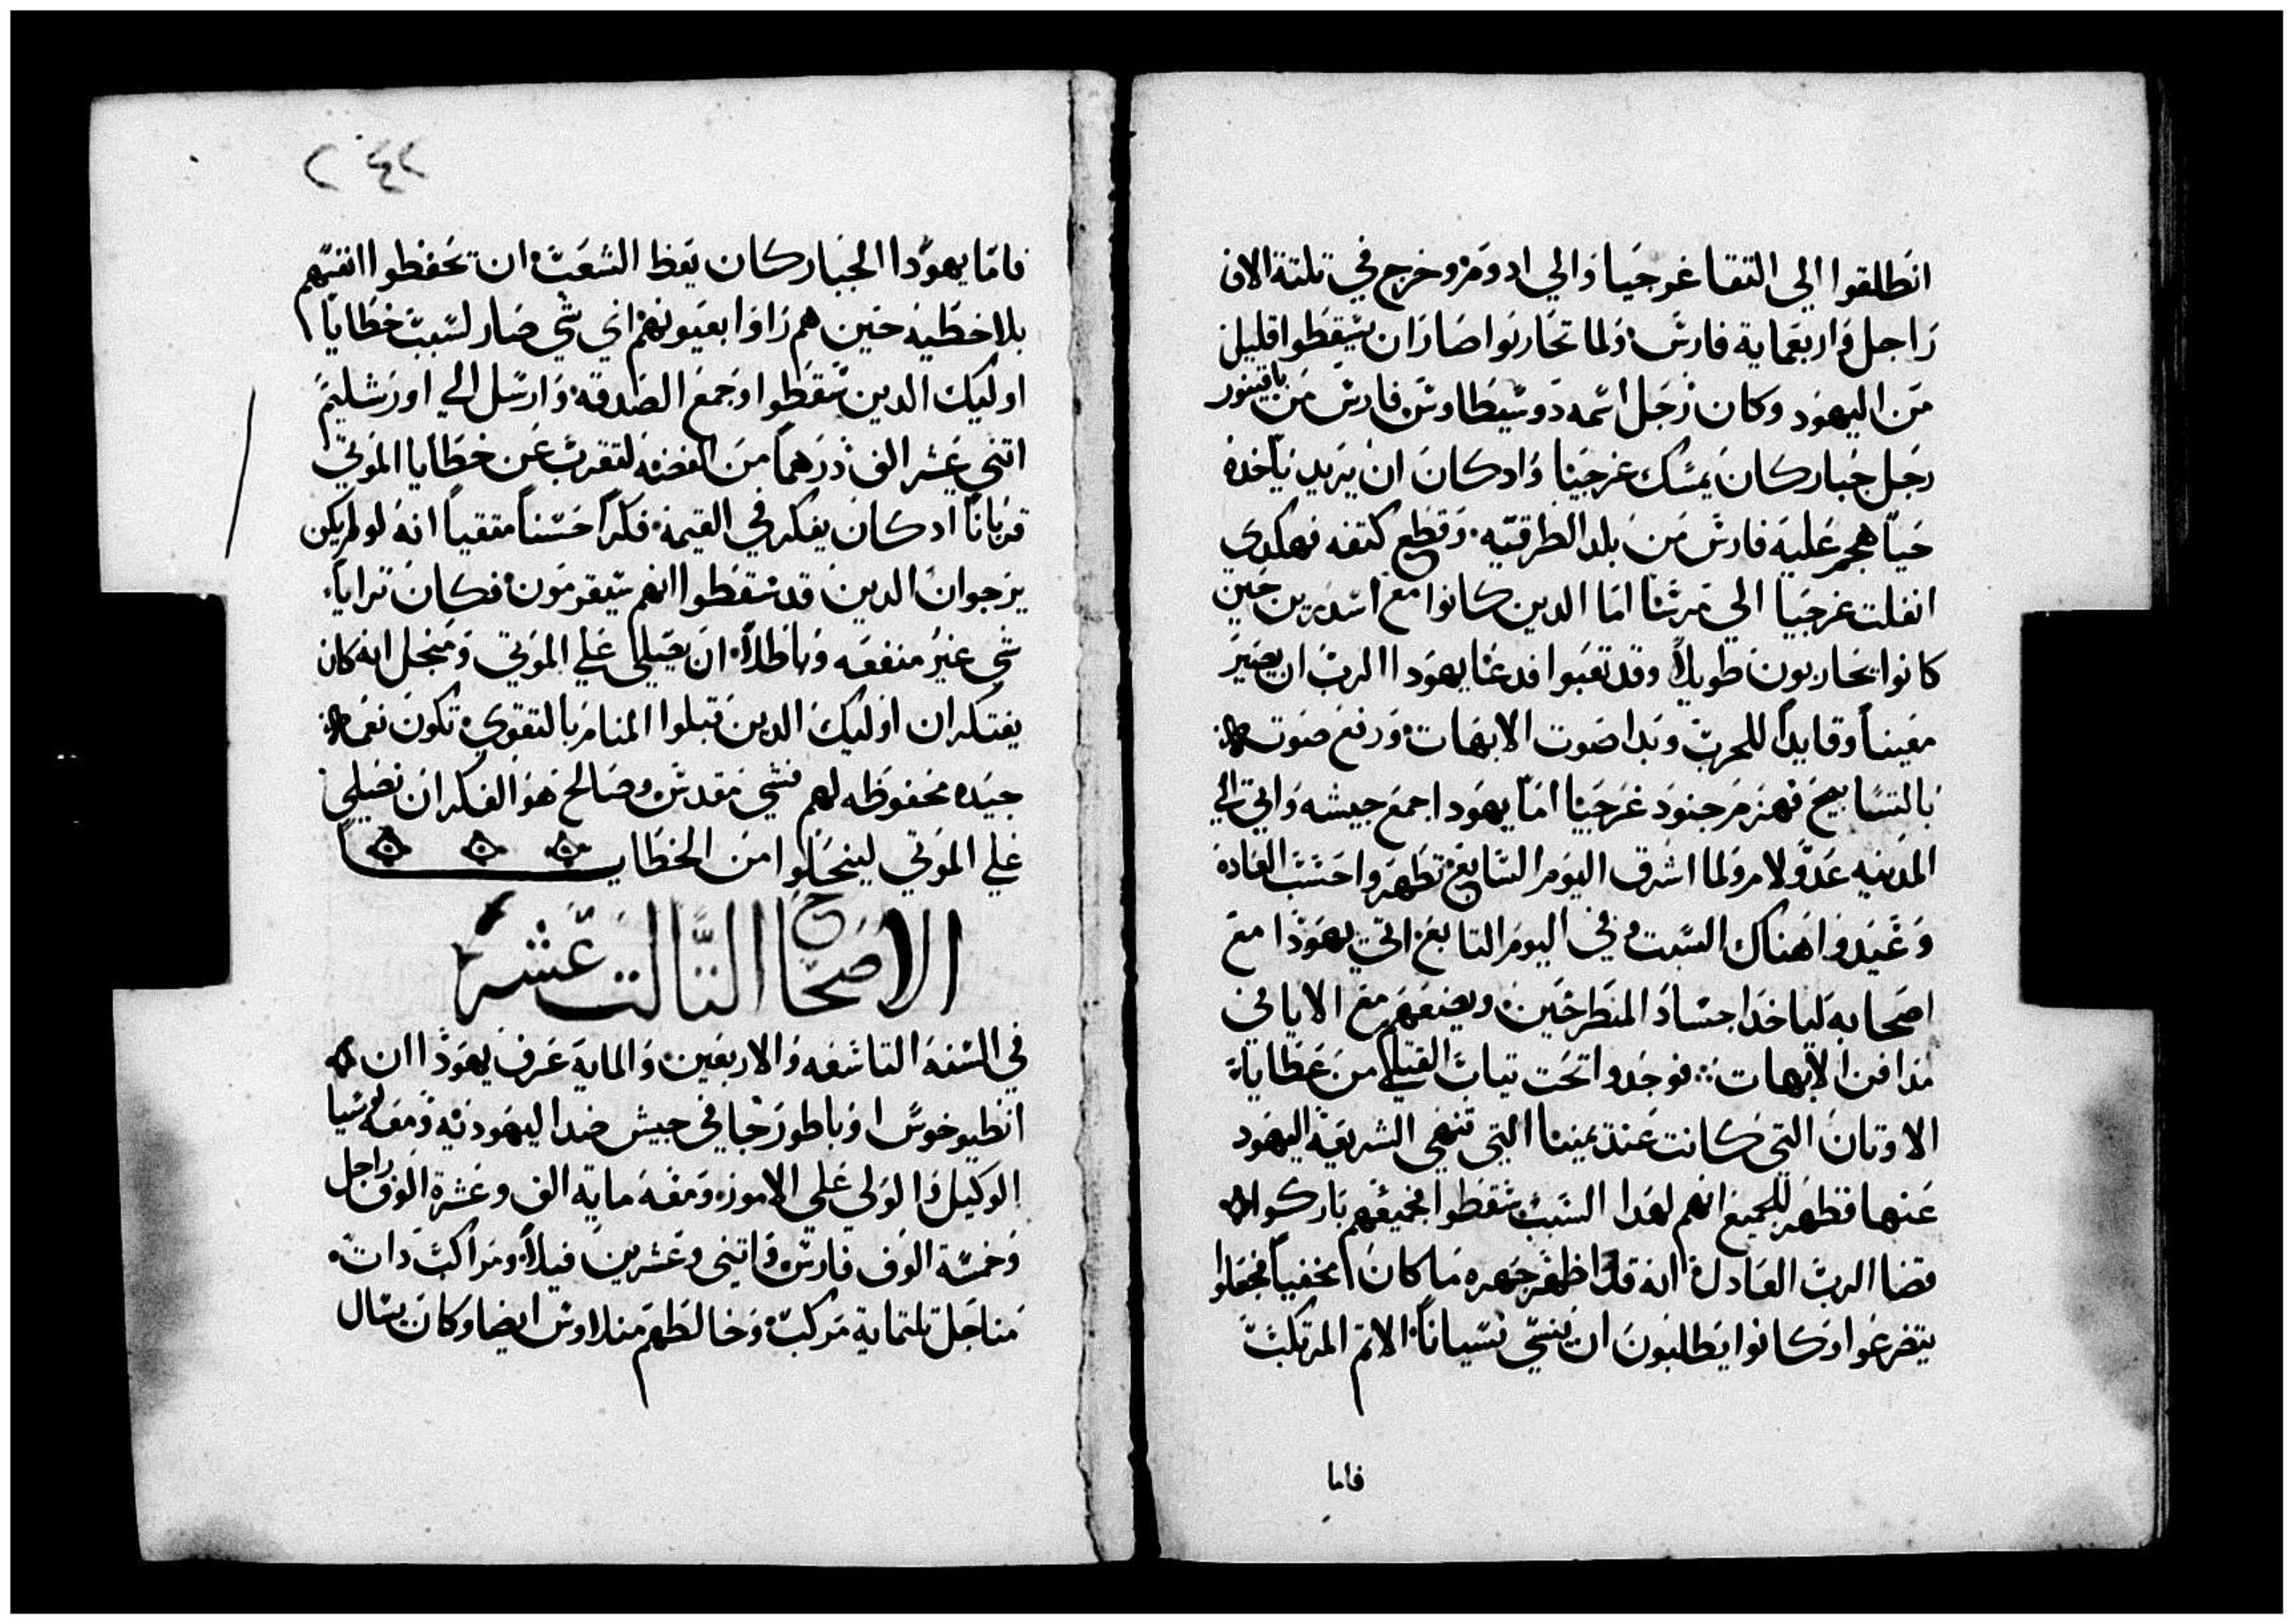 انطلقوا الي التقا غورجيا والي ادوم وخرج في تلتة الاف
راجل واربعماية فارس ولما تحاربوا صار ان سيقطوا قليل
من اليهود وكان رجل اسمه دوسيطاوس فارس من باقينور
رجل جبار كان يمسك غرجيا واد كان ان يريد ياخده
حيا هجم عليه فارس من بلد الطرقيه وقطع كتفه فهكدي
انفلت غرجيا الي مرشا اما الدين كانوا مع اسدرين حين
كانوا يحاربون طويلا وقد تعبوا فدعا يهودا الرب ان يصير
معينا وقايدا للحرب وبدا صوت الابهات ورفع صوت
بالتسابيح فهزم جنود غرجيا اما يهودا جمع جيشه واتي الي
المدينه عدولام ولما اشرق اليوم السابع تطهروا حسب العاده
وعيدوا هناك السبت وفي اليوم التابع اتي يهودا مع
اصحابه لياخد اجساد المنطرحين ويضعهم مع الاباي في
مدافن الابهات فوجدوا تحت تياب القتلي من عطايا
الاوتان التي كانت عند يمينا التي تنهي الشريعه اليهود
عنها فظهر للجميع انهم لهدا السبب سقطوا فجميعهم باركوا
قضا الرب العادل انه قد اظهر جهره ما كان مخفيا فجعلوا
يتضرعوا وكانوا يطلبون ان ينسي نسيانا الاتم المرتكب
فاما
٢٤٢
فاما يهودا الجبار كان يعظ الشعب ان يحفظوا انفسهم
بلا خطيه حين هم راوا بعيونهم اي شي صار لسبب خطايا
اوليك الدين سقطوا وجمع الصدقه وارسل الي اورشليم
اتني عشر الف درهما من الفضه لتقرب عن خطايا الموتي
قربانا اد كان يفكر في القيمة فكرا حسنا متقيا انه لو لم يكن
يرجوا ان الدين قد سقطوا انهم سيقومون فكان ترايا
شي غير منفعه وباطلا ان يصلي علي الموتي ومنجل انه كان
يفتكر ان اوليك الدين قبلوا المنام بالتقوي تكون نعمه
جيده محفوظه لهم فشي مقدس وصالح هو الفكر ان نصلي
علي الموتي لينحلوا من الخطايا
الاصحاح التالت عشر
في السنه التاسعه والاربعين والمايه عرف يهودا ان
انطيوخوس اوباطور جا في جيش ضد اليهوديه ومعه لوسيا
الوكيل والولي علي الامور ومعه ماية الف وعشرة الوف راجل
وخمسة الوف فارس واتني وعشرين فيلا ومراكب دات
مناجل تلتماية مركب وخالطهم منلاوس ايضا وكان يسال